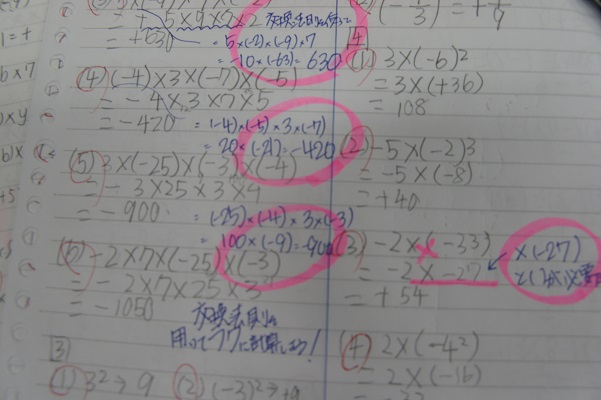 = + 5×9×7×2
= +630
= 5×(-2)×(-9)×7
= -10×(-63)= 630
(4) (-4)×3×(-7)×(-5)
= -4×3×7×5
= -420
= (-4)×(-5)×3×(-7)
= 20×(-21)= -420
(5) 3×(-25)×(-3)×(-4)
= -3×25×3×4
= -900
= (-25)×(-4)×3×(-3)
= 100×(-9)= -900
(6) -2×7×(-25)×(-3)
= -2×7×25×3
= -1050
交換法則を
用いてラクに計算しよう!
3
(1) 3²→9 (2) (-3)²→+9
4
(1) 3×(-6)²
= 3×(+36)
= 108
(2) -5×(-2)3
= -5×(-8)
= +40
(3) -2×(-33)
= -2×-27
= +54
×(-27)
と()が必要
(4) 2×(-4²)
= 2×(-16)